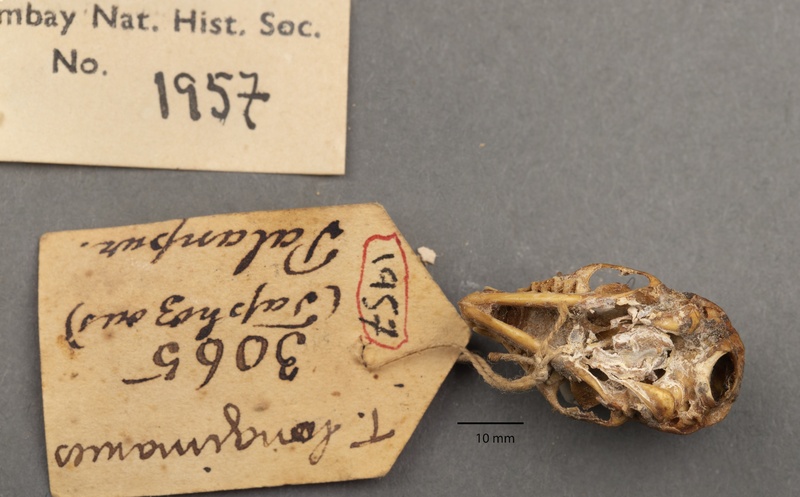 mbay Nat. Hist. Soc.
No. 1957
1957
T. longimanus
3065
(Taphozous)
Palanpur.
10 mm